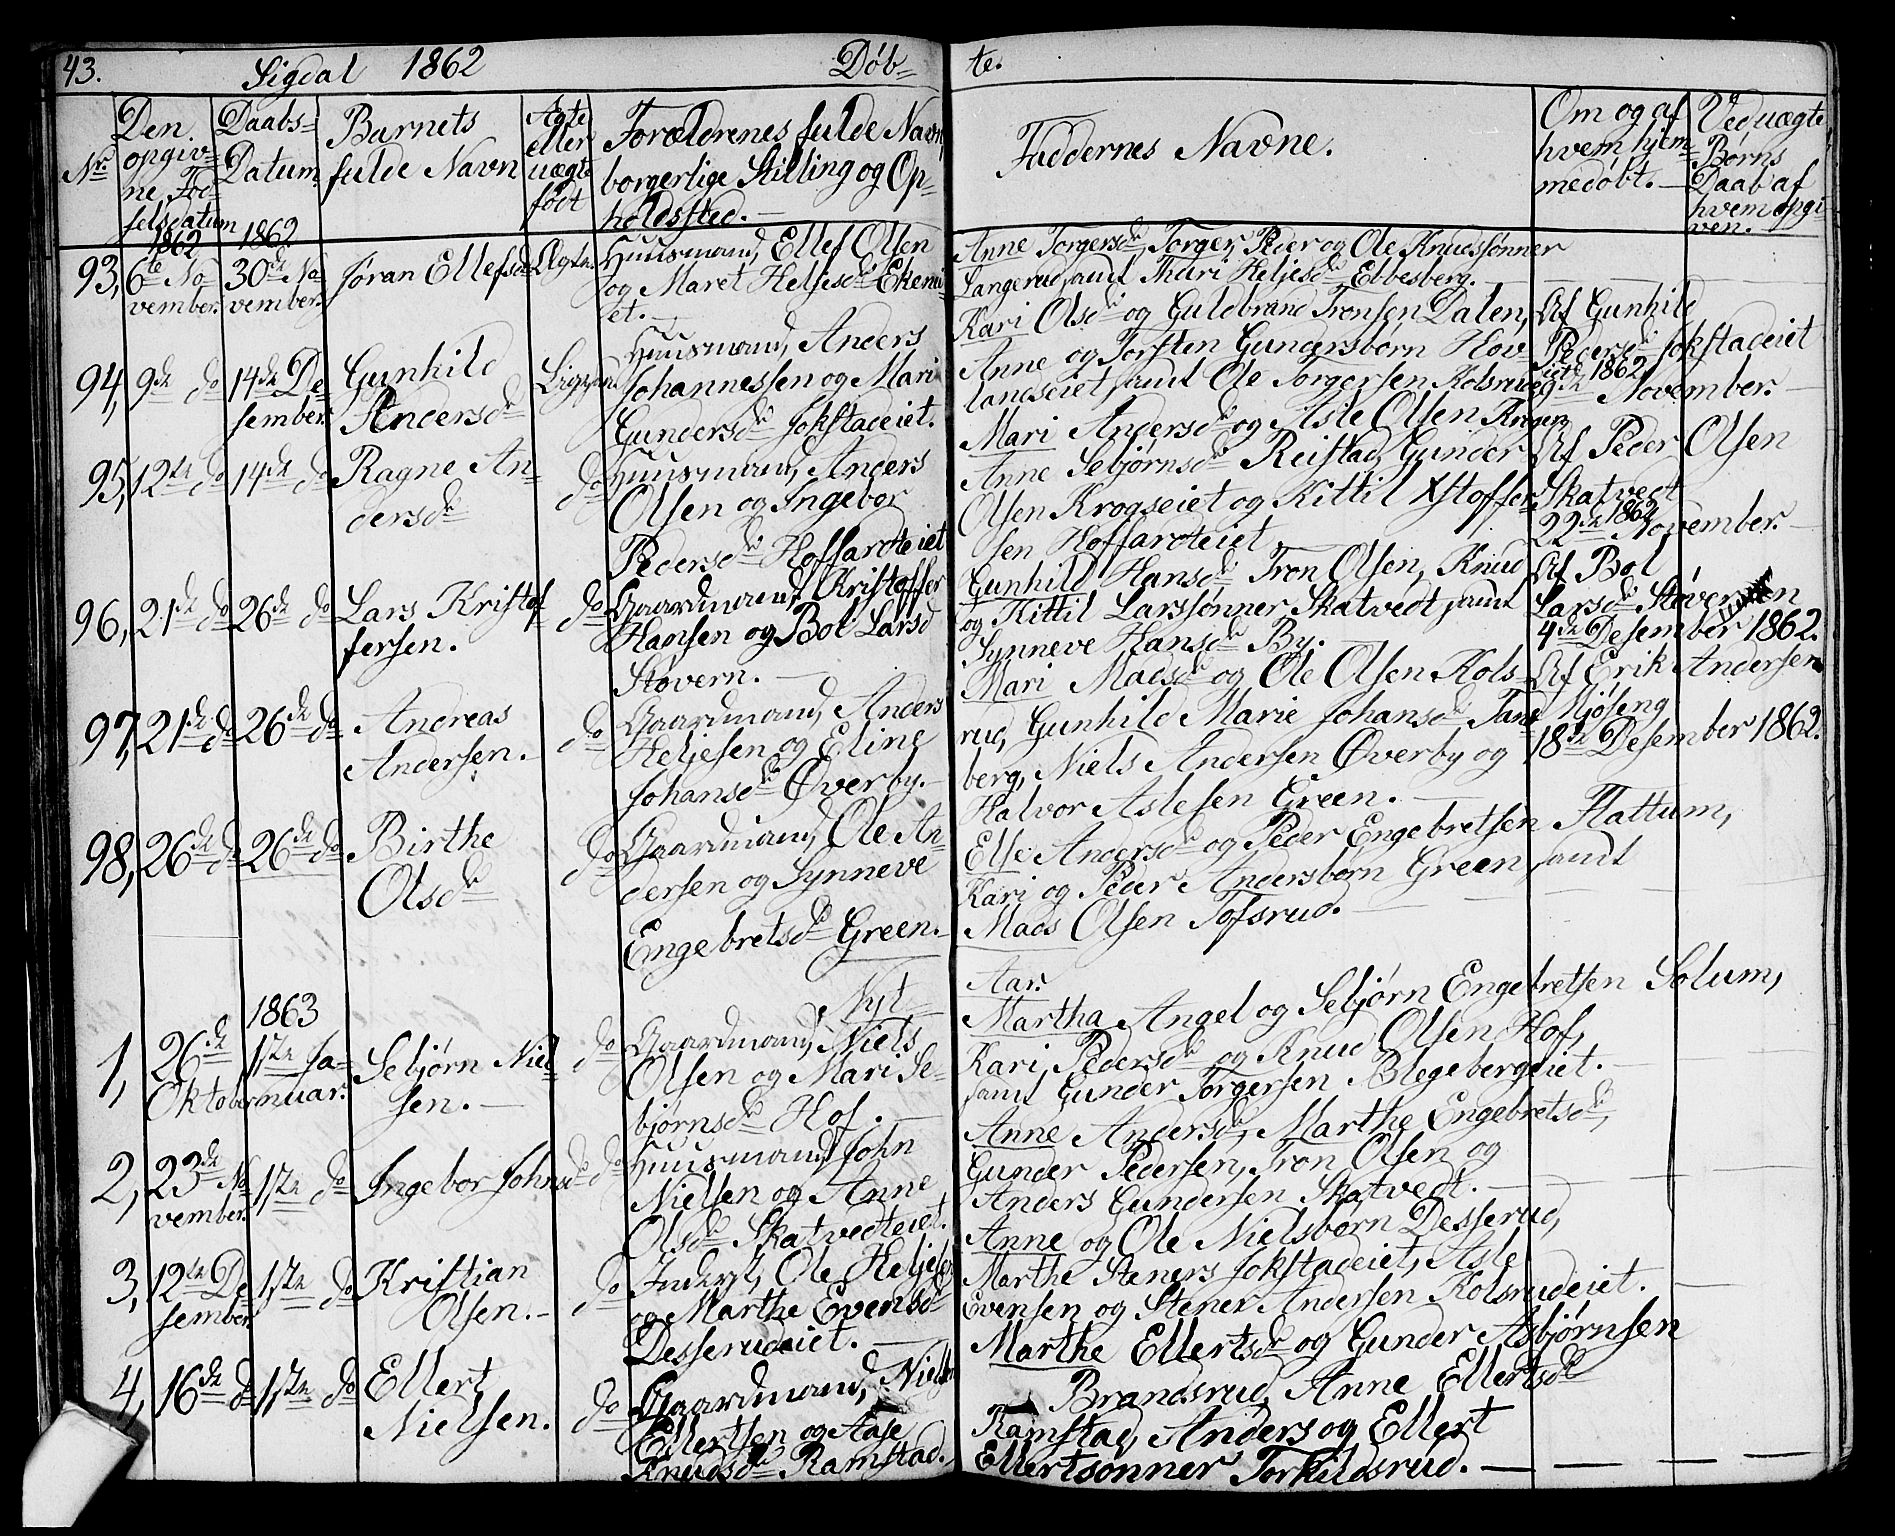 43. Sigdal 1862 Döb= te.
Nr. Den opgiv= ne Föd= selsdatum
Daabs= Datum.
Barnets fulde Navn
Ægte eller uægte födt
Forældrenes fulde Navn, borgerlige Stilling og Op= holdsted.
Faddernes Navne.
Om og af hvem hjem= medöbt.
Ved uægte Börns Daab af hvem opgi ven.
1862 1862
93, 6te No vember. 30de No vember. Jöran Ellefsd. Ægte.
Huusmand, Ellef Olsen
og Maret Heljesdr Ekeni
et.
Anne Torgersdr Torger, Peder og Ole Knudssönner
Langerud, samt Thuri Heljesdr Ebbesberg.
94, 9de do 14de De sember. Gunhild Andersdr
Huusmand, Anders
Johannessen og Mari
Gundersdr Jokstadeiet.
Kari Olsdr og Guldbrand Tronsen Dalen,
Anne og Torsten Gundersbörn Hov
landseiet, samt Ole Torgersen Kolsrud
Af Gunhild
Pedersdr Jokstadeiet
9de November. 1862
95, 12te do 14de do Ragne An= dersdr do
Huusmand, Anders
Olsen og Ingebor
Pedersdr Hoffardteiet
Mari Andersdr og Asle Olsen
Anne Sebjörnsdr Reistad, Gunder
Olsen Krogseiet og Kittil Xstoffer
sen Hoffardteiet.
Af Peder Olsen
Skatvedt
22de November. 1862
96, 21de do 26de do Lars Kristof fersen. do
Gaardmand, Kristoffer
Hansen og Bol Larsd
Stövern.
Gunhild Hansdr Tron Olsen, Knud
og Kittil Larssönner Skatvedt samt
Synneve Hansdr By.
Af Bol
Larsdr Stövern
4de Desember 1862.
97, 21de do 26de do Andreas Andersen. do
Gaardmand, Anders
Heljesen og Eline
Johansdr Överby.
Mari Madsdr og Ole Olsen Kols=
rud, Gunhild Marie Johansdr Tand
berg, Niels Andersen Överby og
Halvor Aslesen Green.
Af Erik Andersen
Mjöseng
18de Desember 1862.
98, 26de do 26de do Birthe Olsdr do
Gaardmand, Ole An=
dersen og Synneve
Engebretsdr Green.
Else Andersdr og Peder Engebretsen Flattum,
Kari og Peder Andersbörn Green samt
Mads Olsen Tofsrud.
Nyt Aar.
1863
1, 26de Oktober 1ste Ja= nuar. Sebjörn Niel sen. do
Gaardmand, Niels
Olsen og Mari Se=
björnsdr Hof.
Martha Angel og Sebjörn Engebretsen Solum,
Kari Pedersdr og Knud Olsen Hof,
samt Gunder Torgersen Blegebergeiet.
2, 23de No vember. 1ste do Ingebor Johnsd do
Huusmand, John
Nielsen og Anne
Olsdr Skatvedteiet.
Anne Andersdr, Marthe Engebretsdr,
Gunder Pedersen, Tron Olsen og
Anders Gundersen Skatvedt.
3, 12te De sember 1ste do Kristian Olsen. do
Inderst, Ole Heljesen
og Marthe Evensdr
Desserudeiet.
Anne og Ole Nielsbörn Desserud,
Marthe Steners Jokstadeiet, Asle
Evensen og Stener Andersen Kolsrudeiet.
4, 16de do 1ste do Ellert Nielsen. do
Gaardmand, Niels
Ellertsen og Aase
Knudsdr Ramstad.
Marthe Ellertsdr og Gunder Asbjörnsen
Brandsrud, Anne Ellertsdr
Ramstad, Anders og Ellert
Ellertsonner Torkildsrud.